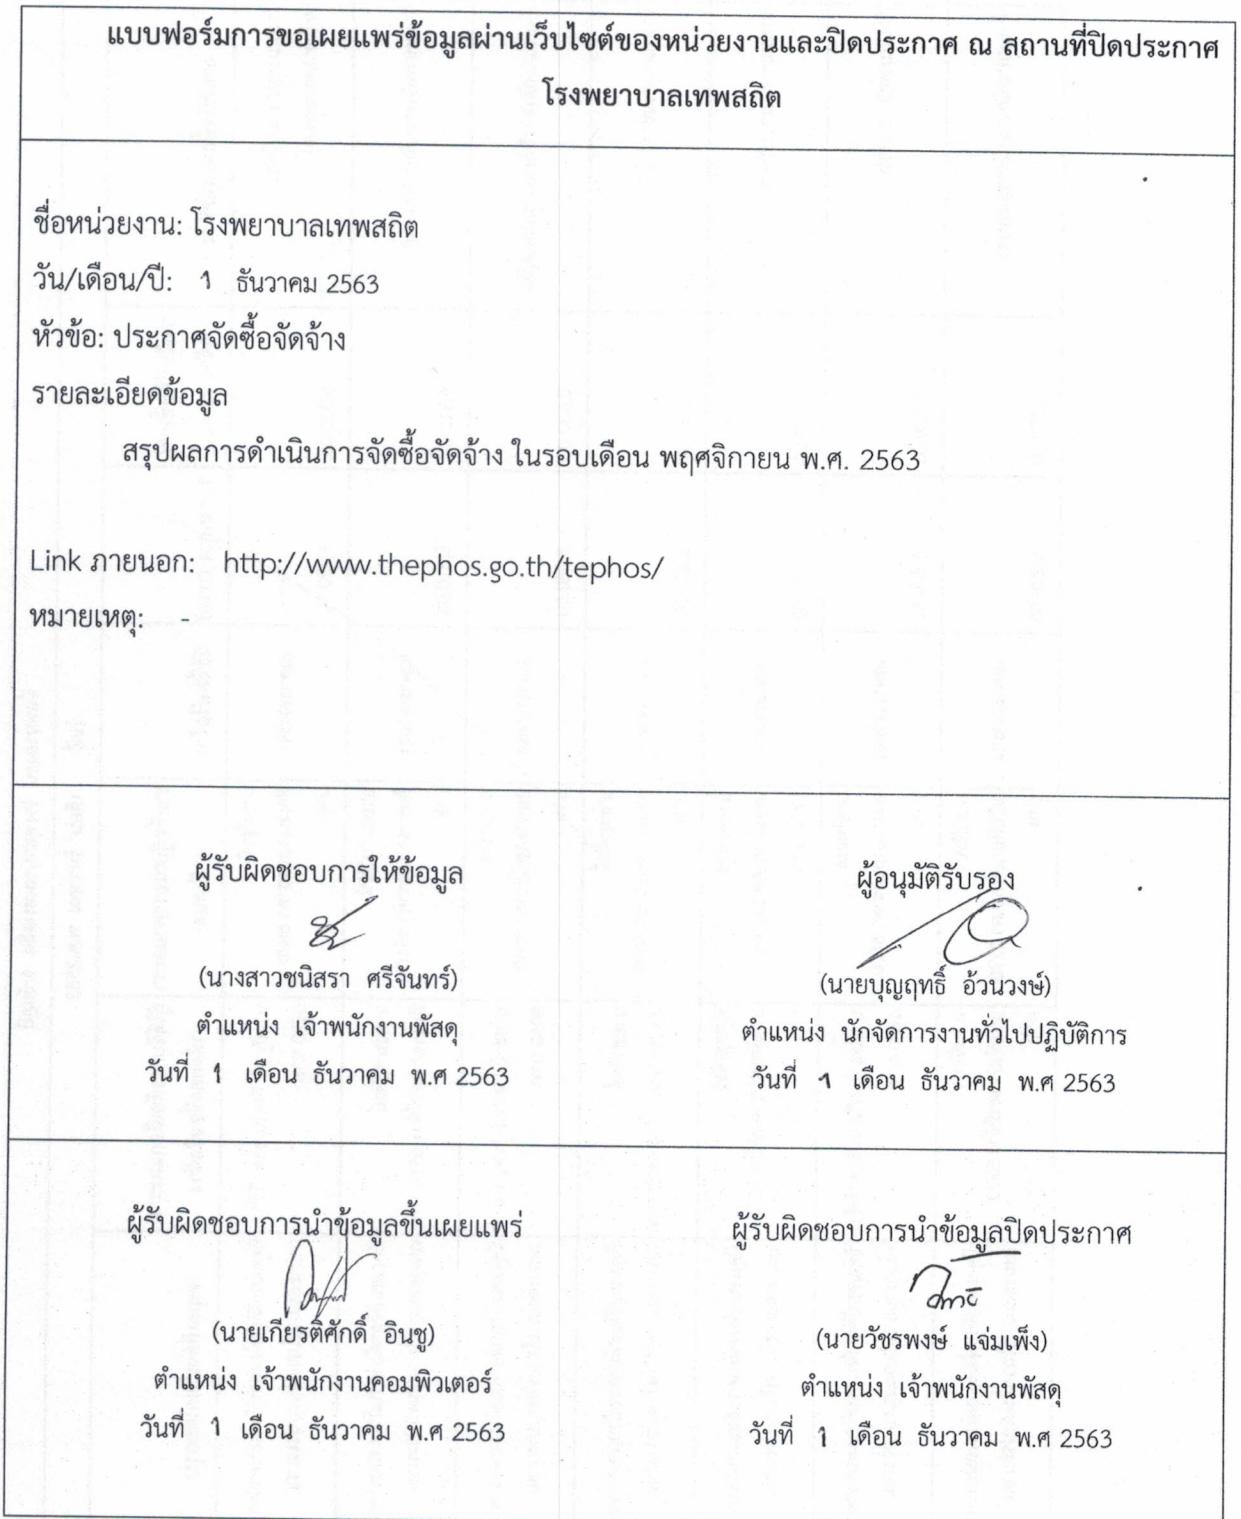 แบบฟอร์มการขอเผยแพร่ข้อมูลผ่านเว็บไซต์ของหน่วยงานและปิดประกาศ ณ สถานที่ปิดประกาศ
โรงพยาบาลเทพสถิต
ชื่อหน่วยงาน: โรงพยาบาลเทพสถิต
วัน/เดือน/ปี: 1 ธันวาคม 2563
หัวข้อ: ประกาศจัดซื้อจัดจ้าง
รายละเอียดข้อมูล
สรุปผลการดำเนินการจัดซื้อจัดจ้าง ในรอบเดือน พฤศจิกายน พ.ศ. 2563
Link ภายนอก: http://www.thephos.go.th/tephos/
หมายเหตุ: -
ผู้รับผิดชอบการให้ข้อมูล
(นางสาวชนิสรา ศรีจันทร์)
ตำแหน่ง เจ้าพนักงานพัสดุ
วันที่ 1 เดือน ธันวาคม พ.ศ 2563
ผู้อนุมัติรับรอง
(นายบุญฤทธิ์ อ้วนวงษ์)
ตำแหน่ง นักจัดการงานทั่วไปปฏิบัติการ
วันที่ 1 เดือน ธันวาคม พ.ศ 2563
ผู้รับผิดชอบการนำข้อมูลขึ้นเผยแพร่
(นายเกียรติศักดิ์ อินชู)
ตำแหน่ง เจ้าพนักงานคอมพิวเตอร์
วันที่ 1 เดือน ธันวาคม พ.ศ 2563
ผู้รับผิดชอบการนำข้อมูลปิดประกาศ
(นายวัชรพงษ์ แจ่มเพ็ง)
ตำแหน่ง เจ้าพนักงานพัสดุ
วันที่ 1 เดือน ธันวาคม พ.ศ 2563